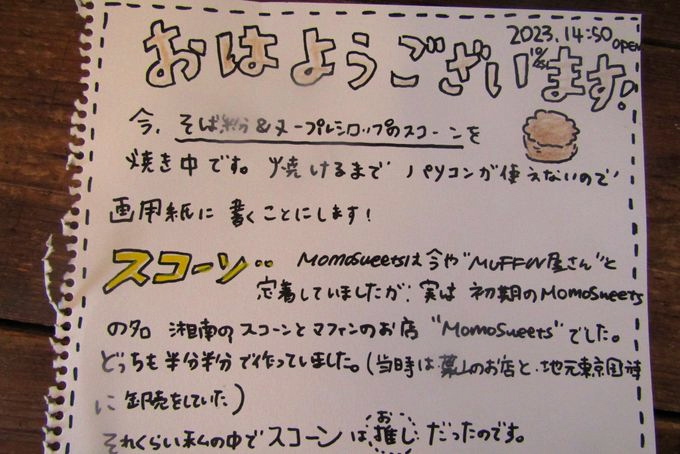 おはようございます。
2023. 14:50 OPEN
今、そば粉&メープルシロップのスコーンを
焼き中です。焼けるまでパソコンが使えないので
画用紙に書くことにします!
スコーン・・ MomoSweetsは今や"MUFFIN屋さん"と
定着していましたが、実は初期のMomoSweets
の名 湘南のスコーンとマフィンのお店 "MomoSweets"でした。
どっちも半分半分で作っていました。(当時は葉山のお店と、地元東京国
に卸売をしていた)
それくらい私の中でスコーンはお推しだったのです。